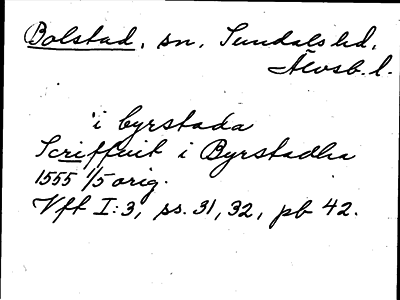 Bolstad, sn, Sundals hd,
Älvsb. l.
i byrstada
Scriffuit i Byrstadha
1555 1/5 orig.
Vft I:3, ss. 31, 32, pb 42.